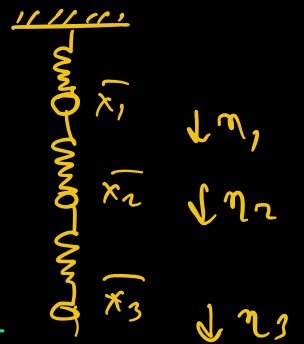 x̄₁ ↓ η₁
x̄₂ ↓ η₂
x̄₃ ↓ η₃